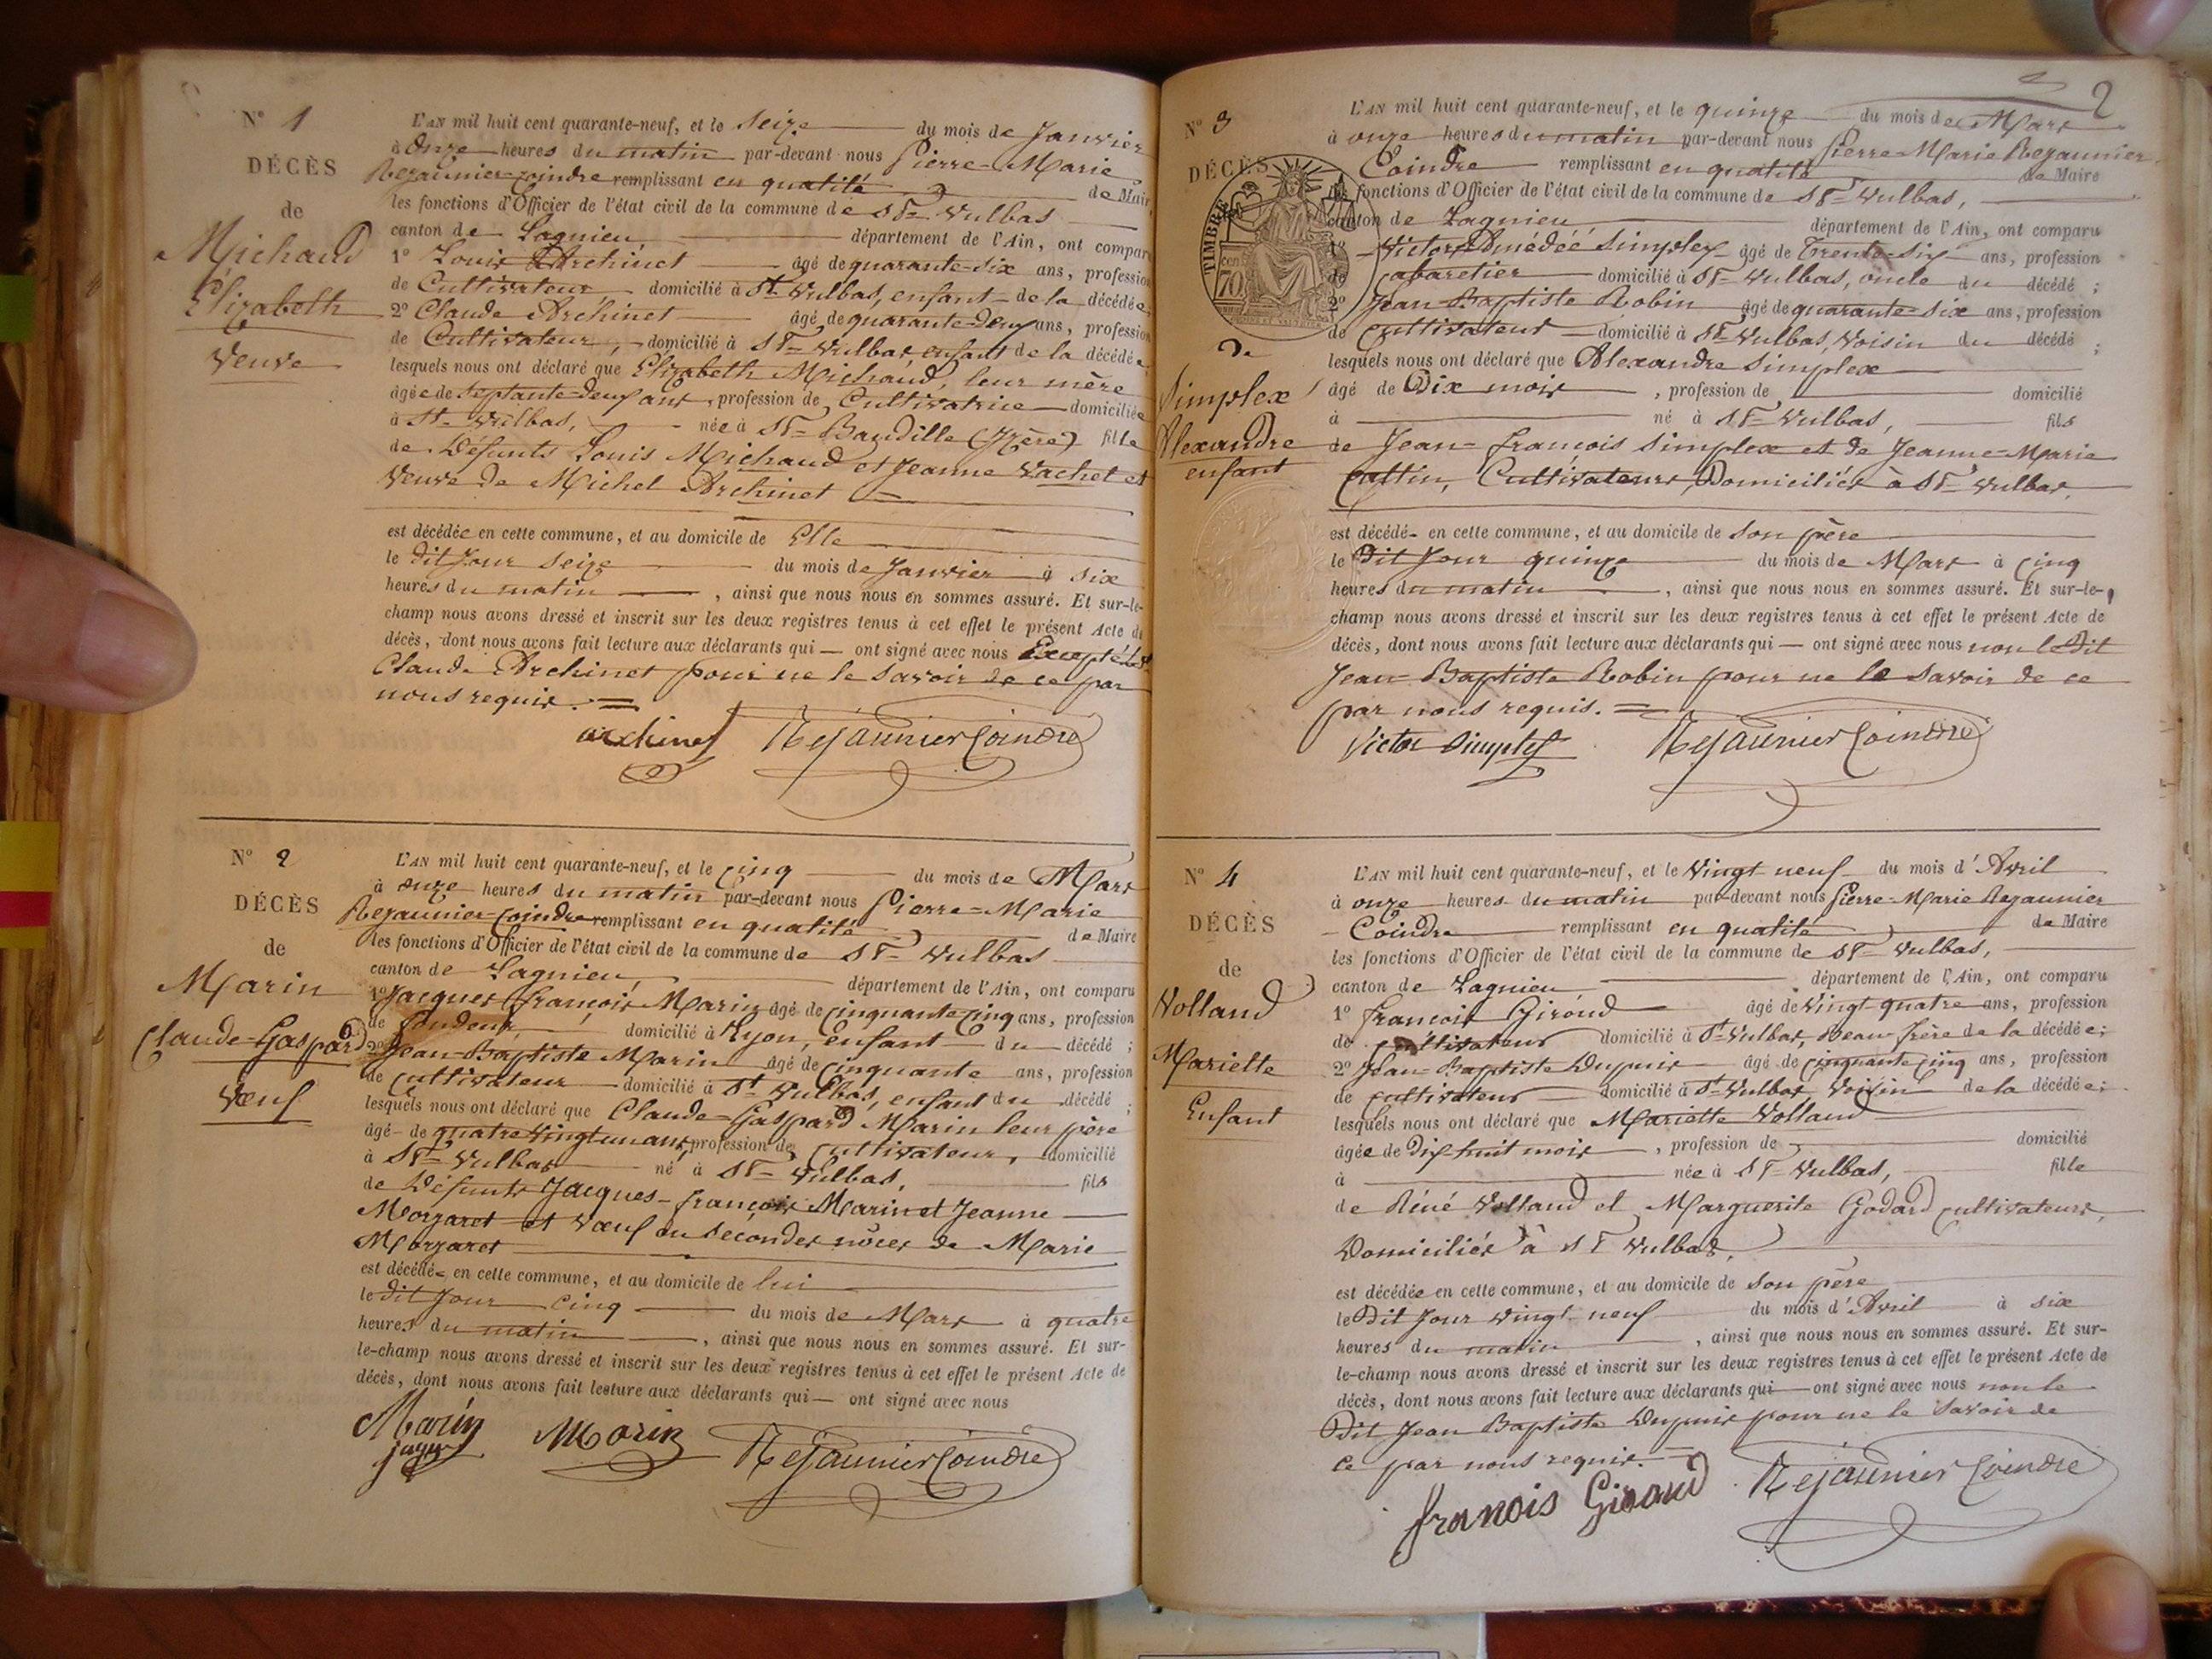 N° 1
DÉCÈS
de
Michaud
Élizabeth
Veuve
L'AN mil huit cent quarante-neuf, et le Seize du mois de Janvier
à Onze heures du matin par-devant nous Pierre-Marie
Rejaunier-Coindre remplissant en qualité de Maire
les fonctions d'Officier de l'état civil de la commune de St Vulbas
canton de Lagnieu département de l'Ain, ont comparu
1° Louis Archinet âgé de quarante-six ans, profession
de Cultivateur domicilié à St Vulbas, enfant de la décédée
2° Claude Archinet âgé de quarante-deux ans, profession
de Cultivateur, domicilié à St Vulbas enfant de la décédée
lesquels nous ont déclaré que Elizabeth Michaud, leur mère
âgée de Septante-deux ans, profession de Cultivatrice domiciliée
à St Vulbas, née à St Baudille (Isère) fille
de Défunts Louis Michaud et Jeanne Vachet et
Veuve de Michel Archinet
est décédée en cette commune, et au domicile de Elle
le dit Jour Seize du mois de Janvier à six
heures du matin, ainsi que nous nous en sommes assuré. Et sur-le-
champ nous avons dressé et inscrit sur les deux registres tenus à cet effet le présent Acte de
décès, dont nous avons fait lecture aux déclarants qui — ont signé avec nous Excepté
Claude Archinet pour ne le savoir de ce par
nous requis. =
archinet Rejaunier Coindre
N° 2
DÉCÈS
de
Marin
Claude-Gaspard
Vœuf
L'AN mil huit cent quarante-neuf, et le cinq du mois de Mars
à onze heures du matin par-devant nous Pierre-Marie
Rejaunier-Coindre remplissant en qualité de Maire
les fonctions d'Officier de l'état civil de la commune de St Vulbas
canton de Lagnieu département de l'Ain, ont comparu
1° Jacques-françois Marin âgé de cinquante-cinq ans, profession
de fondeur domicilié à Lyon, enfant du décédé ;
2° Jean-Baptiste Marin âgé de cinquante ans, profession
de cultivateur domicilié à St Vulbas, enfant du décédé ;
lesquels nous ont déclaré que Claude-Gaspard Marin leur père
âgé de quatre vingt un ans, profession de cultivateur, domicilié
à St Vulbas né à St Vulbas, fils
de Défunts Jacques-françois Marin et Jeanne
Morgaret et Vœuf en secondes nôces de Marie
Morgaret
est décédé en cette commune, et au domicile de lui
le dit Jour cinq du mois de Mars à quatre
heures du matin, ainsi que nous nous en sommes assuré. Et sur-
le-champ nous avons dressé et inscrit sur les deux registres tenus à cet effet le présent Acte de
décès, dont nous avons fait lecture aux déclarants qui — ont signé avec nous
Marin Marin Rejaunier Coindre
2
N° 3
DÉCÈS
TIMBRE
70
de
Simplex
Alexandre
enfant
L'AN mil huit cent quarante-neuf, et le quinze du mois de Mars
à onze heures du matin par-devant nous Pierre-Marie Rejaunier
Coindre remplissant en qualité de Maire
les fonctions d'Officier de l'état civil de la commune de St Vulbas,
canton de Lagnieu département de l'Ain, ont comparu
1° Victor Amédée Simplex âgé de Trente-six ans, profession
de cabaretier domicilié à St Vulbas, oncle du décédé ;
2° Jean-Baptiste Robin âgé de quarante-six ans, profession
de cultivateur domicilié à St Vulbas, Voisin du décédé ;
lesquels nous ont déclaré que Alexandre Simplex
âgé de Dix mois, profession de domicilié
à né à St Vulbas, fils
de Jean-françois Simplex et de Jeanne-Marie
Cattin, Cultivateurs, Domiciliés à St Vulbas.
est décédé en cette commune, et au domicile de son père
le Dit Jour quinze du mois de Mars à cinq
heures du matin, ainsi que nous nous en sommes assuré. Et sur-le-
champ nous avons dressé et inscrit sur les deux registres tenus à cet effet le présent Acte de
décès, dont nous avons fait lecture aux déclarants qui — ont signé avec nous non le Dit
Jean-Baptiste Robin pour ne le savoir de ce
par nous requis. =
Victor Simplex Rejaunier Coindre
N° 4
DÉCÈS
de
Volland
Mariette
Enfant
L'AN mil huit cent quarante-neuf, et le Vingt neuf du mois d'Avril
à onze heures du matin par-devant nous Pierre-Marie Rejaunier
Coindre remplissant en qualité de Maire
les fonctions d'Officier de l'état civil de la commune de St Vulbas,
canton de Lagnieu département de l'Ain, ont comparu
1° françois Giroud âgé de Vingt-quatre ans, profession
de cultivateur domicilié à St Vulbas, Beau frère de la décédée ;
2° Jean-Baptiste Dupuis âgé de cinquante cinq ans, profession
de cultivateur domicilié à St Vulbas Voisin de la décédée ;
lesquels nous ont déclaré que Mariette Volland
âgée de Dix huit mois, profession de domicilié
à née à St Vulbas, fille
de Réné Volland et Marguerite Godard cultivateurs,
Domiciliés à St Vulbas.
est décédée en cette commune, et au domicile de son père
le Dit Jour vingt-neuf du mois d'Avril à six
heures du matin, ainsi que nous nous en sommes assuré. Et sur-
le-champ nous avons dressé et inscrit sur les deux registres tenus à cet effet le présent Acte de
décès, dont nous avons fait lecture aux déclarants qui — ont signé avec nous non le
Dit Jean Baptiste Dupuis pour ne le savoir de
ce par nous requis. =
franois Giroud Rejaunier Coindre